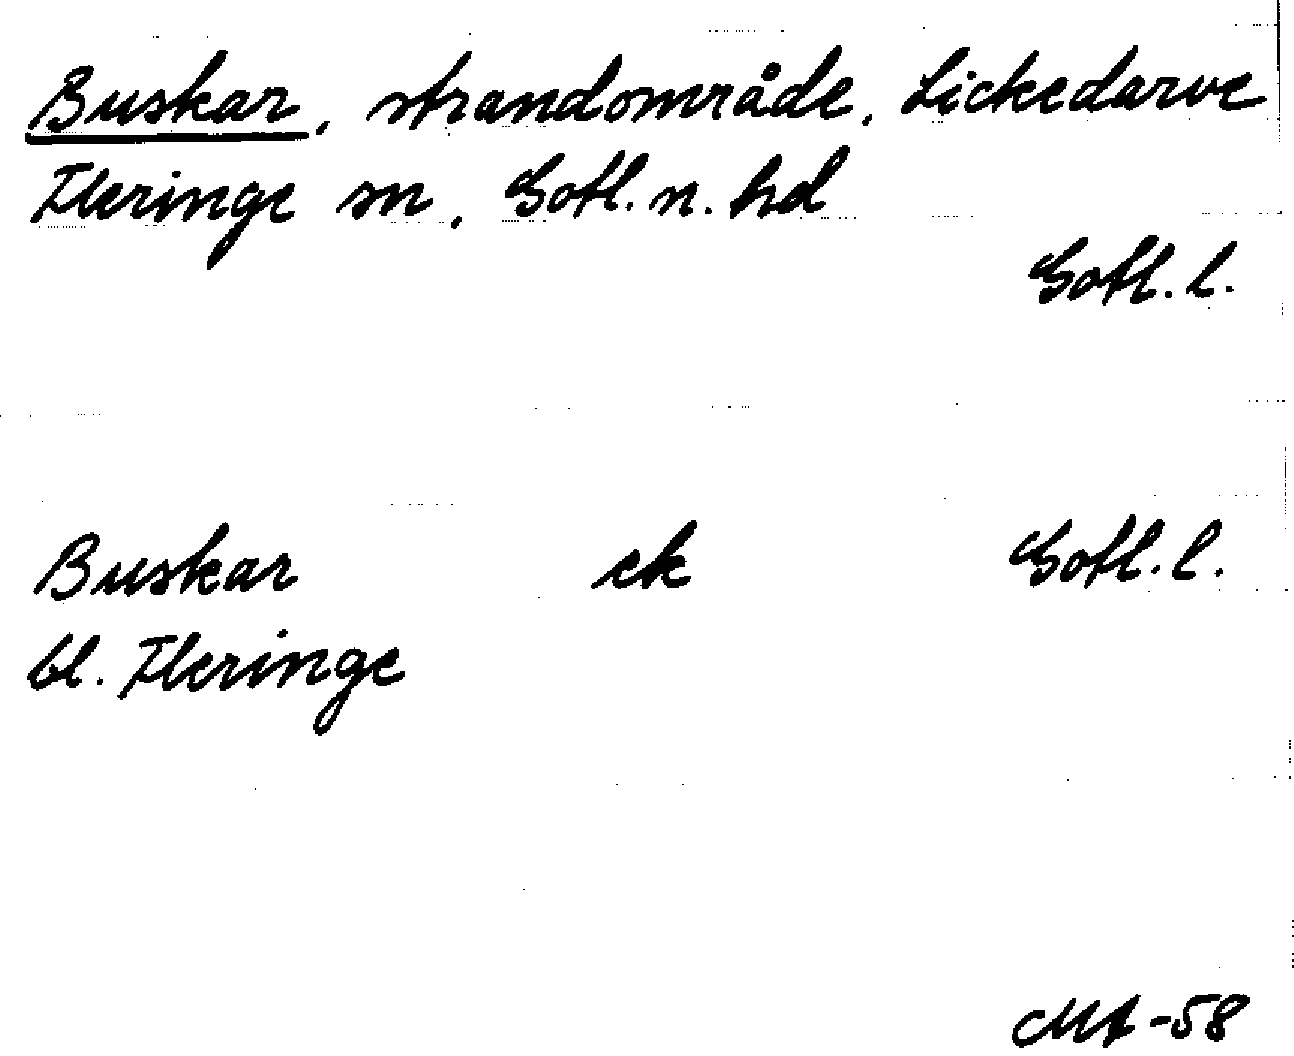 Buskar, strandområde, Lickedarve
Fleringe sn, Gotl. n. hd
Gotl. l.
Buskar ek Gotl. l.
bl. Fleringe
-58